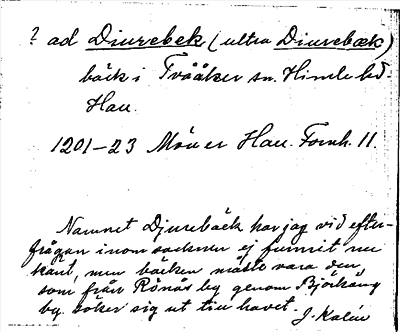 ? ad Diurebek (ultra Diurebæk)
bäck i Tvååker sn. Himle hd
Hau.
1201–23 Möuer Hau. Fornh. 11.
Namnet Djurebäck har jag vid efter-
frågan inom socknen ej funnit nu
känt, men bäcken måste vara den
som från Rönås by genom Björkäng
by söker sig ut till havet. J. Kalén